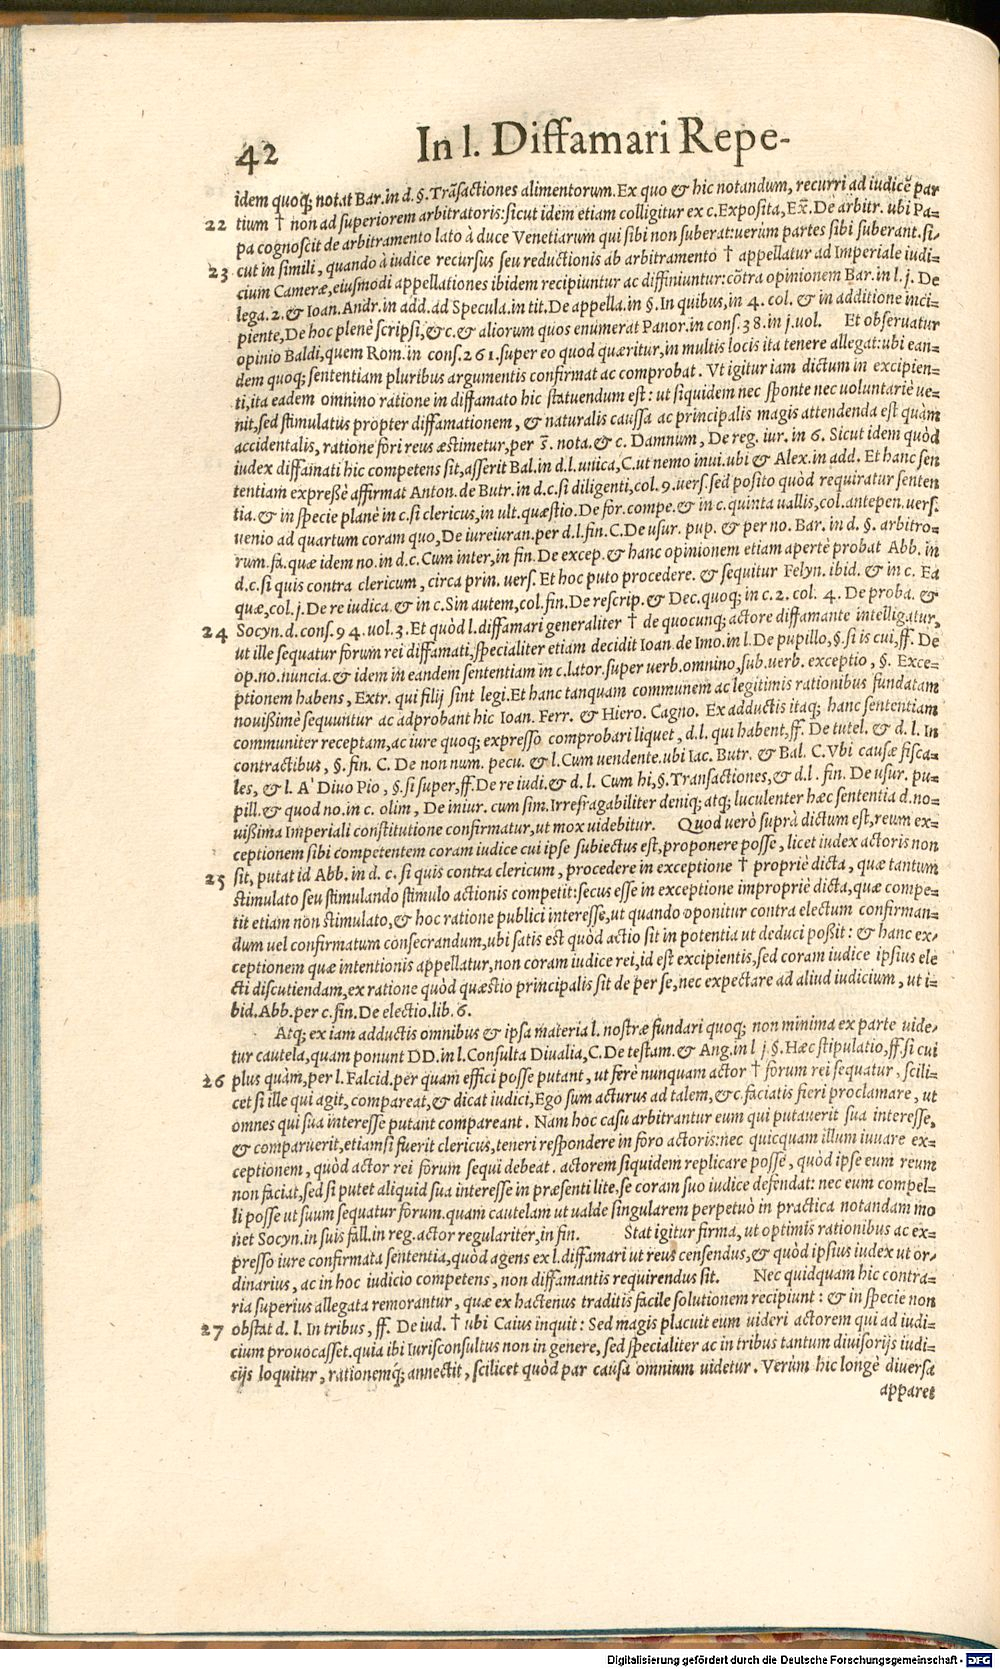 42 In l. Diffamari Repe-
idem quoq; notat Bar. in d. §. Trãsactiones alimentorum. Ex quo & hic notandum, recurri ad iudicẽ par
22 tium † non ad superiorem arbitratoris: sicut idem etiam colligitur ex c. Exposita, Ex̃. De arbitr. ubi Pa=
pa cognoscit de arbitramento lato à duce Venetiarum qui sibi non suberat: uerùm partes sibi suberant. si=
23 cut in simili, quando à iudice recursus seu reductionis ab arbitramento † appellatur ad Imperiale iudi=
cium Cameræ, eiusmodi appellationes ibidem recipiuntur ac diffiniuntur: cõtra opinionem Bar. in l. j. De
lega. 2. & Ioan. Andr. in add. ad Specula. in tit. De appella. in §. In quibus, in 4. col. & in additione inci=
piente, De hoc plenè scripsi, &c. & aliorum quos enumerat Panor. in cons. 38. in j. uol. Et obseruatur
opinio Baldi, quem Rom. in cons. 261. super eo quod quæritur, in multis locis ita tenere allegat: ubi ean=
dem quoq; sententiam pluribus argumentis confirmat ac comprobat. Vt igitur iam dictum in excipien=
ti, ita eadem omnino ratione in diffamato hic statuendum est: ut siquidem nec sponte nec uoluntariè ue=
nit, sed stimulatus propter diffamationem, & naturalis caussa ac principalis magis attendenda est quàm
accidentalis, ratione fori reus æstimetur, per s̃. nota. & c. Damnum, De reg. iur. in 6. Sicut idem quòd
iudex diffamati hic competens sit, asserit Bal. in d. l. unica, C. ut nemo inui. ubi & Alex. in add. Et hanc sen
tentiam expreßè affirmat Anton. de Butr. in d. c. si diligenti, col. 9. uers. sed posito quòd requiratur senten
tia. & in specie planè in c. si clericus, in ult. quæstio. De for. compe. & in c. quinta uallis, col. antepen. uers.
uenio ad quartum coram quo, De iureiuran. per d. l. fin. C. De usur. pup. & per no. Bar. in d. §. arbitro=
rum. fa. quæ idem no. in d. c. Cum inter, in fin. De excep. & hanc opinionem etiam apertè probat Abb. in
d. c. si quis contra clericum, circa prin. uers. Et hoc puto procedere. & sequitur Felyn. ibid. & in c. Ea
quæ, col. j. De re iudica. & in c. Sin autem, col. fin. De rescrip. & Dec. quoq; in c. 2. col. 4. De proba. &
24 Socyn. d. cons. 94. uol. 3. Et quòd l. diffamari generaliter † de quocunq; actore diffamante intelligatur,
ut ille sequatur forum rei diffamati, specialiter etiam decidit Ioan. de Imo. in l. De pupillo, §. si is cui, ff. De
op. no. nuncia. & idem in eandem sententiam in c. lator. super uerb. omnino, sub. uerb. exceptio, §. Exce=
ptionem habens, Extr. qui filij sint legi. Et hanc tanquam communem ac legitimis rationibus fundatam
nouißimè sequuntur ac adprobant hic Ioan. Ferr. & Hiero. Cagno. Ex adductis itaq; hanc sententiam
communiter receptam, ac iure quoq; expresso comprobari liquet, d. l. qui habent, ff. De tutel. & d. l. In
contractibus, §. fin. C. De non num. pecu. & l. Cum uendente. ubi Iac. Butr. & Bal. C. Vbi causæ fisca=
les, & l. A' Diuo Pio, §. si super, ff. De re iudi. & d. l. Cum hi, §. Transactiones, & d. l. fin. De usur. pu=
pill. & quod no. in c. olim, De iniur. cum sim. Irrefragabiliter deniq; atq; luculenter hæc sententia d. no=
uißima Imperiali constitutione confirmatur, ut mox uidebitur. Quod uerò suprà dictum est, reum ex=
ceptionem sibi competentem coram iudice cui ipse subiectus est, proponere posse, licet iudex actoris non
25 sit, putat id Abb. in d. c. si quis contra clericum, procedere in exceptione † propriè dicta, quæ tantum
stimulato seu stimulando stimulo actionis competit: secus esse in exceptione impropriè dicta, quæ compe=
tit etiam non stimulato, & hoc ratione publici interesse, ut quando oponitur contra electum confirman=
dum uel confirmatum consecrandum, ubi satis est quòd actio sit in potentia ut deduci poßit: & hanc ex=
ceptionem quæ intentionis appellatur, non coram iudice rei, id est excipientis, sed coram iudice ipsius ele
cti discutiendam, ex ratione quòd quæstio principalis sit de per se, nec expectare ad aliud iudicium, ut i=
bid. Abb. per c. fin. De electio. lib. 6.
Atq; ex iam adductis omnibus & ipsa materia l. nostræ fundari quoq; non minima ex parte uide=
tur cautela, quam ponunt DD. in l. Consulta Diualia, C. De testam. & Ang. in l j. §. Hæc stipulatio, ff. si cui
26 plus quàm, per l. Falcid. per quam effici posse putant, ut ferè nunquam actor † forum rei sequatur, scili=
cet si ille qui agit, compareat, & dicat iudici, Ego sum acturus ad talem, &c. faciatis fieri proclamare, ut
omnes qui sua interesse putant compareant. Nam hoc casu arbitrantur eum qui putauerit sua interesse,
& comparuerit, etiamsi fuerit clericus, teneri respondere in foro actoris: nec quicquam illum iuuare ex=
ceptionem, quòd actor rei forum sequi debeat. actorem siquidem replicare posse, quòd ipse eum reum
non faciat, sed si putet aliquid sua interesse in præsenti lite, se coram suo iudice defendat: nec eum compel=
li posse ut suum sequatur forum. quam cautelam ut ualde singularem perpetuò in practica notandam mo
net Socyn. in suis fall. in reg. actor regulariter, in fin. Stat igitur firma, ut optimis rationibus ac ex=
presso iure confirmata sententia, quòd agens ex l. diffamari ut reus censendus, & quòd ipsius iudex ut or=
dinarius, ac in hoc iudicio competens, non diffamantis requirendus sit. Nec quidquam hic contra=
ria superius allegata remorantur, quæ ex hactenus traditis facile solutionem recipiunt: & in specie non
27 obstat d. l. In tribus, ff. De iud. † ubi Caius inquit: Sed magis placuit eum uideri actorem qui ad iudi=
cium prouocasset. quia ibi Iurisconsultus non in genere, sed specialiter ac in tribus tantum diuisorijs iudi=
cijs loquitur, rationemq́; annectit, scilicet quòd par causa omnium uidetur. Verùm hic longè diuersa
apparet
Digitalisierung gefördert durch die Deutsche Forschungsgemeinschaft - DFG